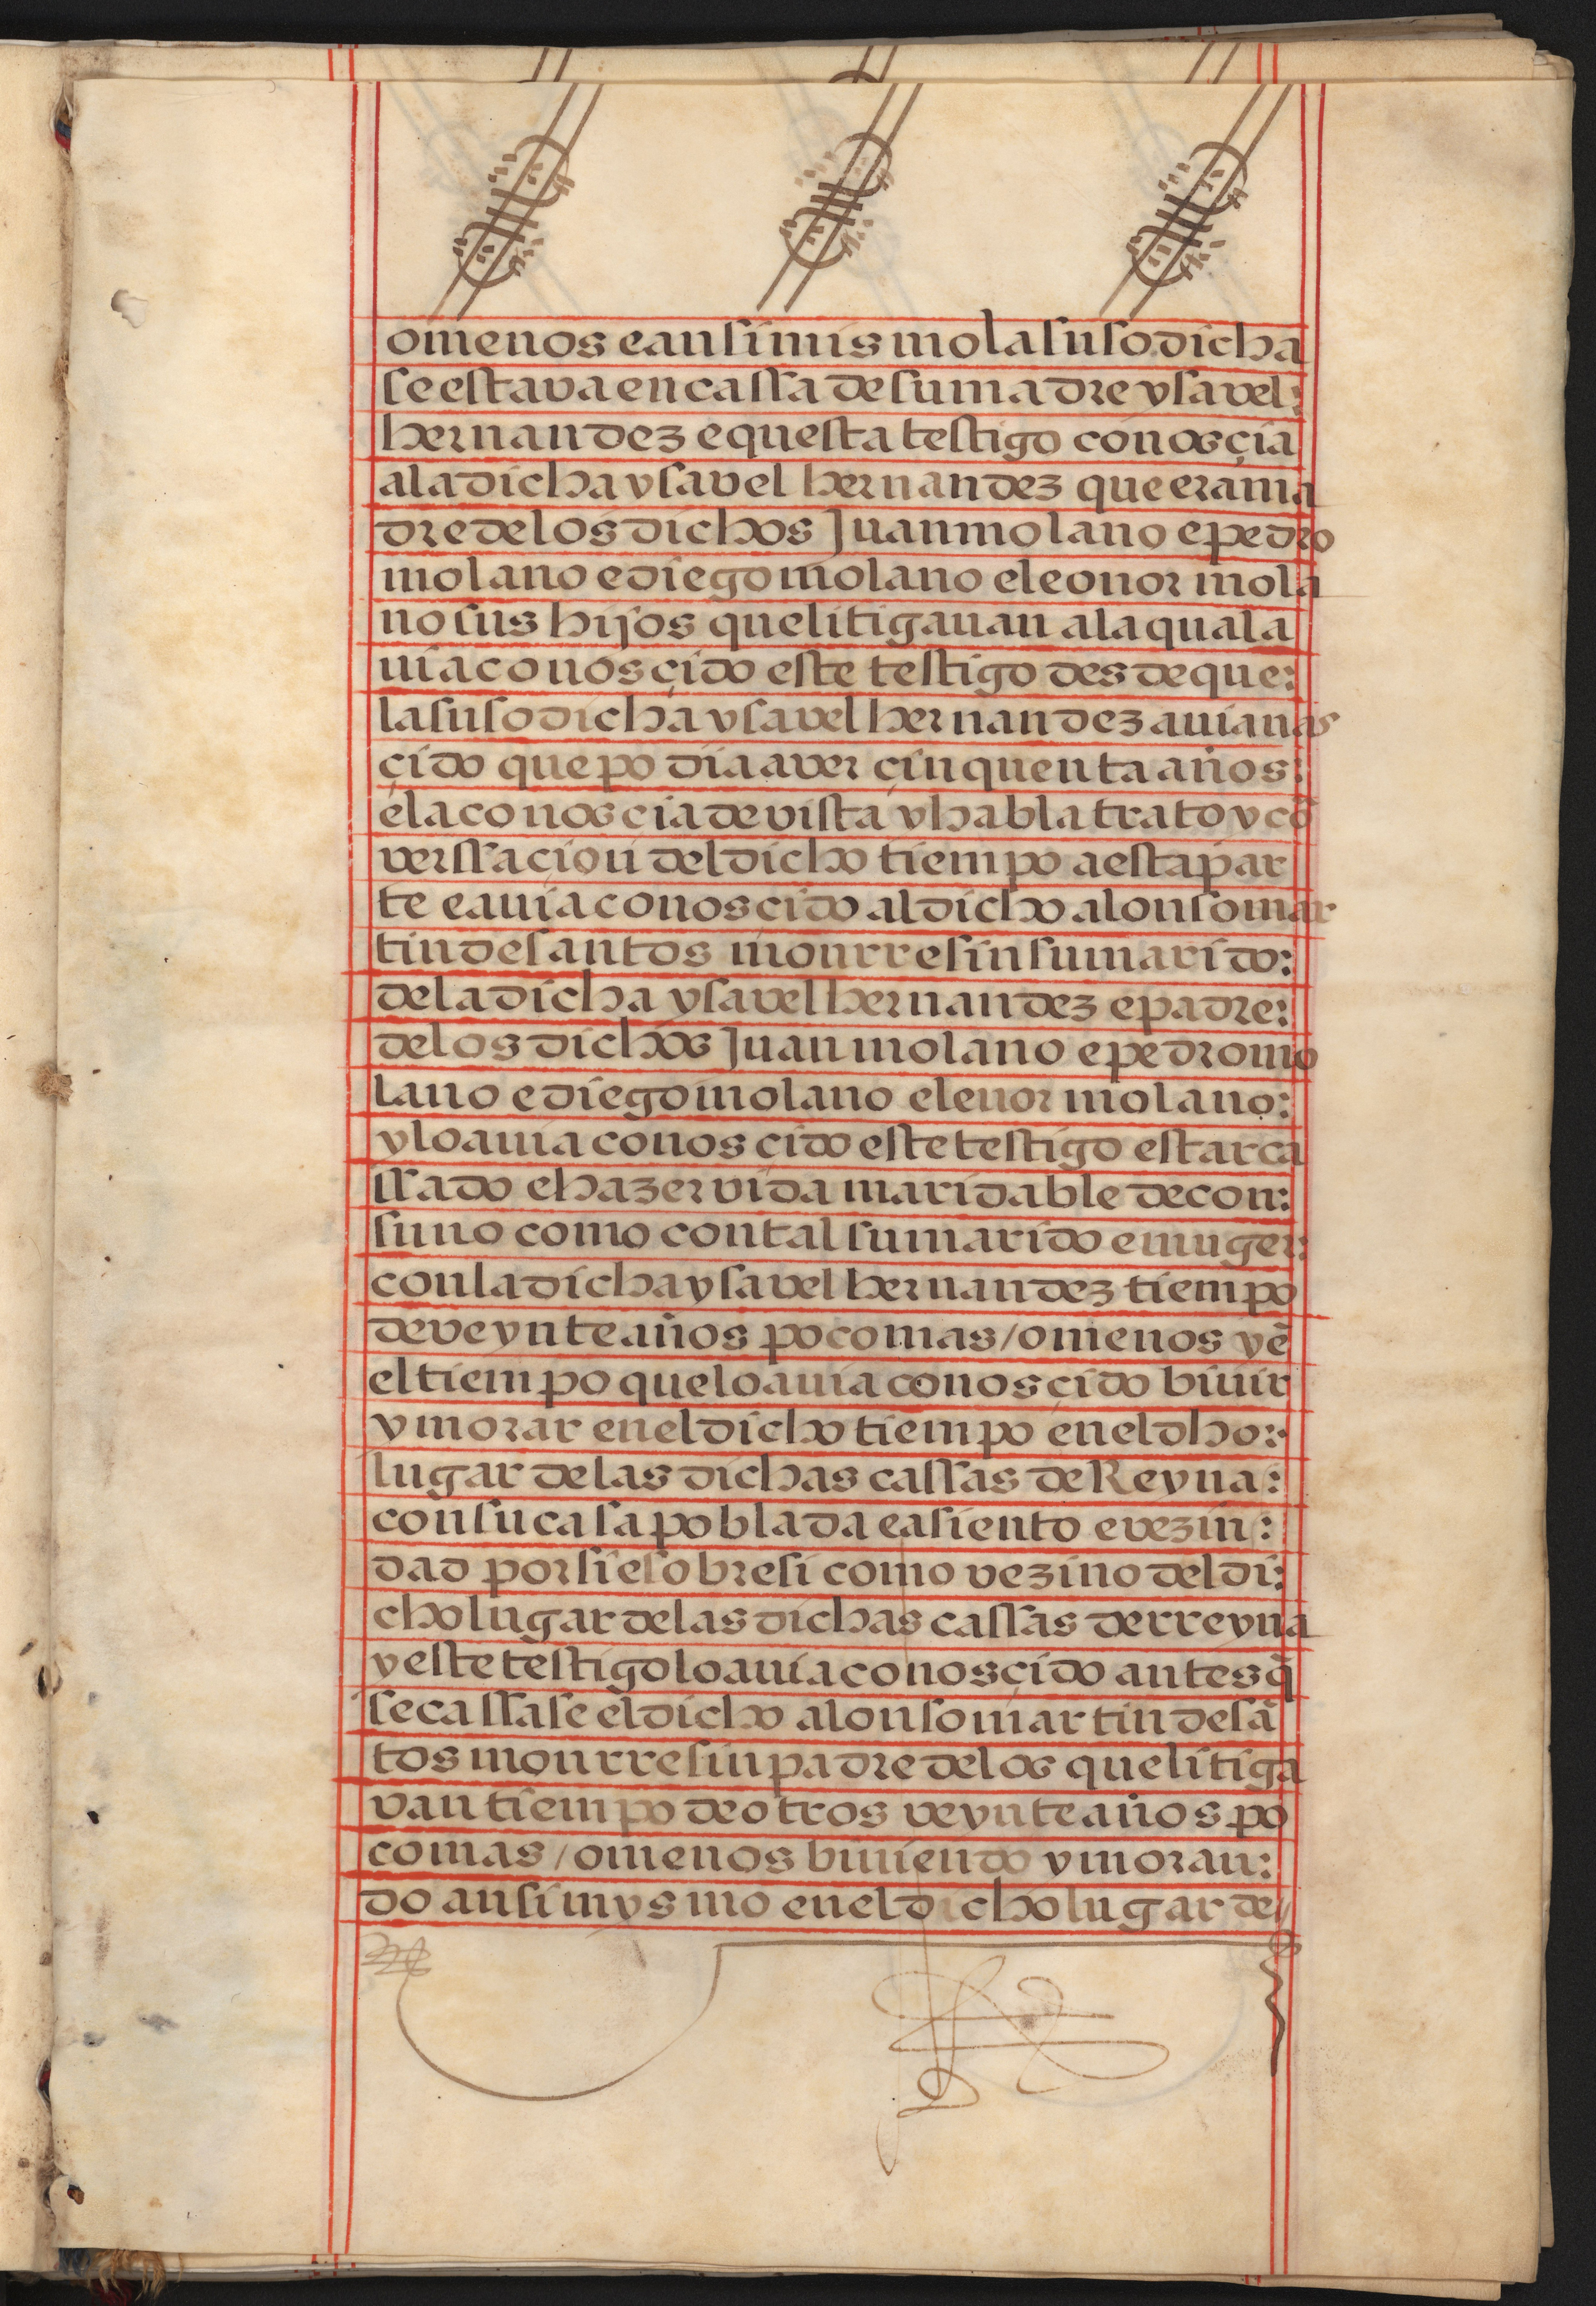 omenos e ansimismo la susodicha
se estava en cassa de su madre ysavel:
hernandez e questa testigo conosçia
a la dicha ysavel hernandez que era ma
dre de los dichos Juan molano e pedro
molano e diego molano e leonor mola
no sus hijos que litigauan a la qual a
uia conosçido este testigo desde que:
la susodicha ysavel hernandez auia nas
çido que podia aver çinquenta años:
e la conosçia de vista y habla trato y cõ
verssaçion del dicho tiempo a esta par
te e auia conosçido al dicho alonso mar
tin de santos mourresin su marido:
de la dicha ysavel hernandez e padre:
de los dichos Juan molano e pedro mo
lano e diego molano e lenor molano:
y lo auia conosçido este testigo estar ca
ssado e hazer vida maridable de con:
suno como con tal su marido e muger:
con la dicha ysavel hernandez tiempo
de veynte años poco mas / o menos y ẽ
el tiempo que lo auia conosçido biuir
y morar en el dicho tiempo en el dho:
lugar de las dichas cassas de Reyna:
con su casa poblada e asiento e vezin:
dad por si e sobre si como vezino del di:
cho lugar de las dichas cassas de rreyna
y este testigo lo auia conosçido antes q̃
se cassase el dicho alonso martin de sã
tos mourresin padre de los que litiga
van tiempo de otros veynte años po
co mas / o menos biuiendo y moran:
do ansimysmo en el dicho lugar de